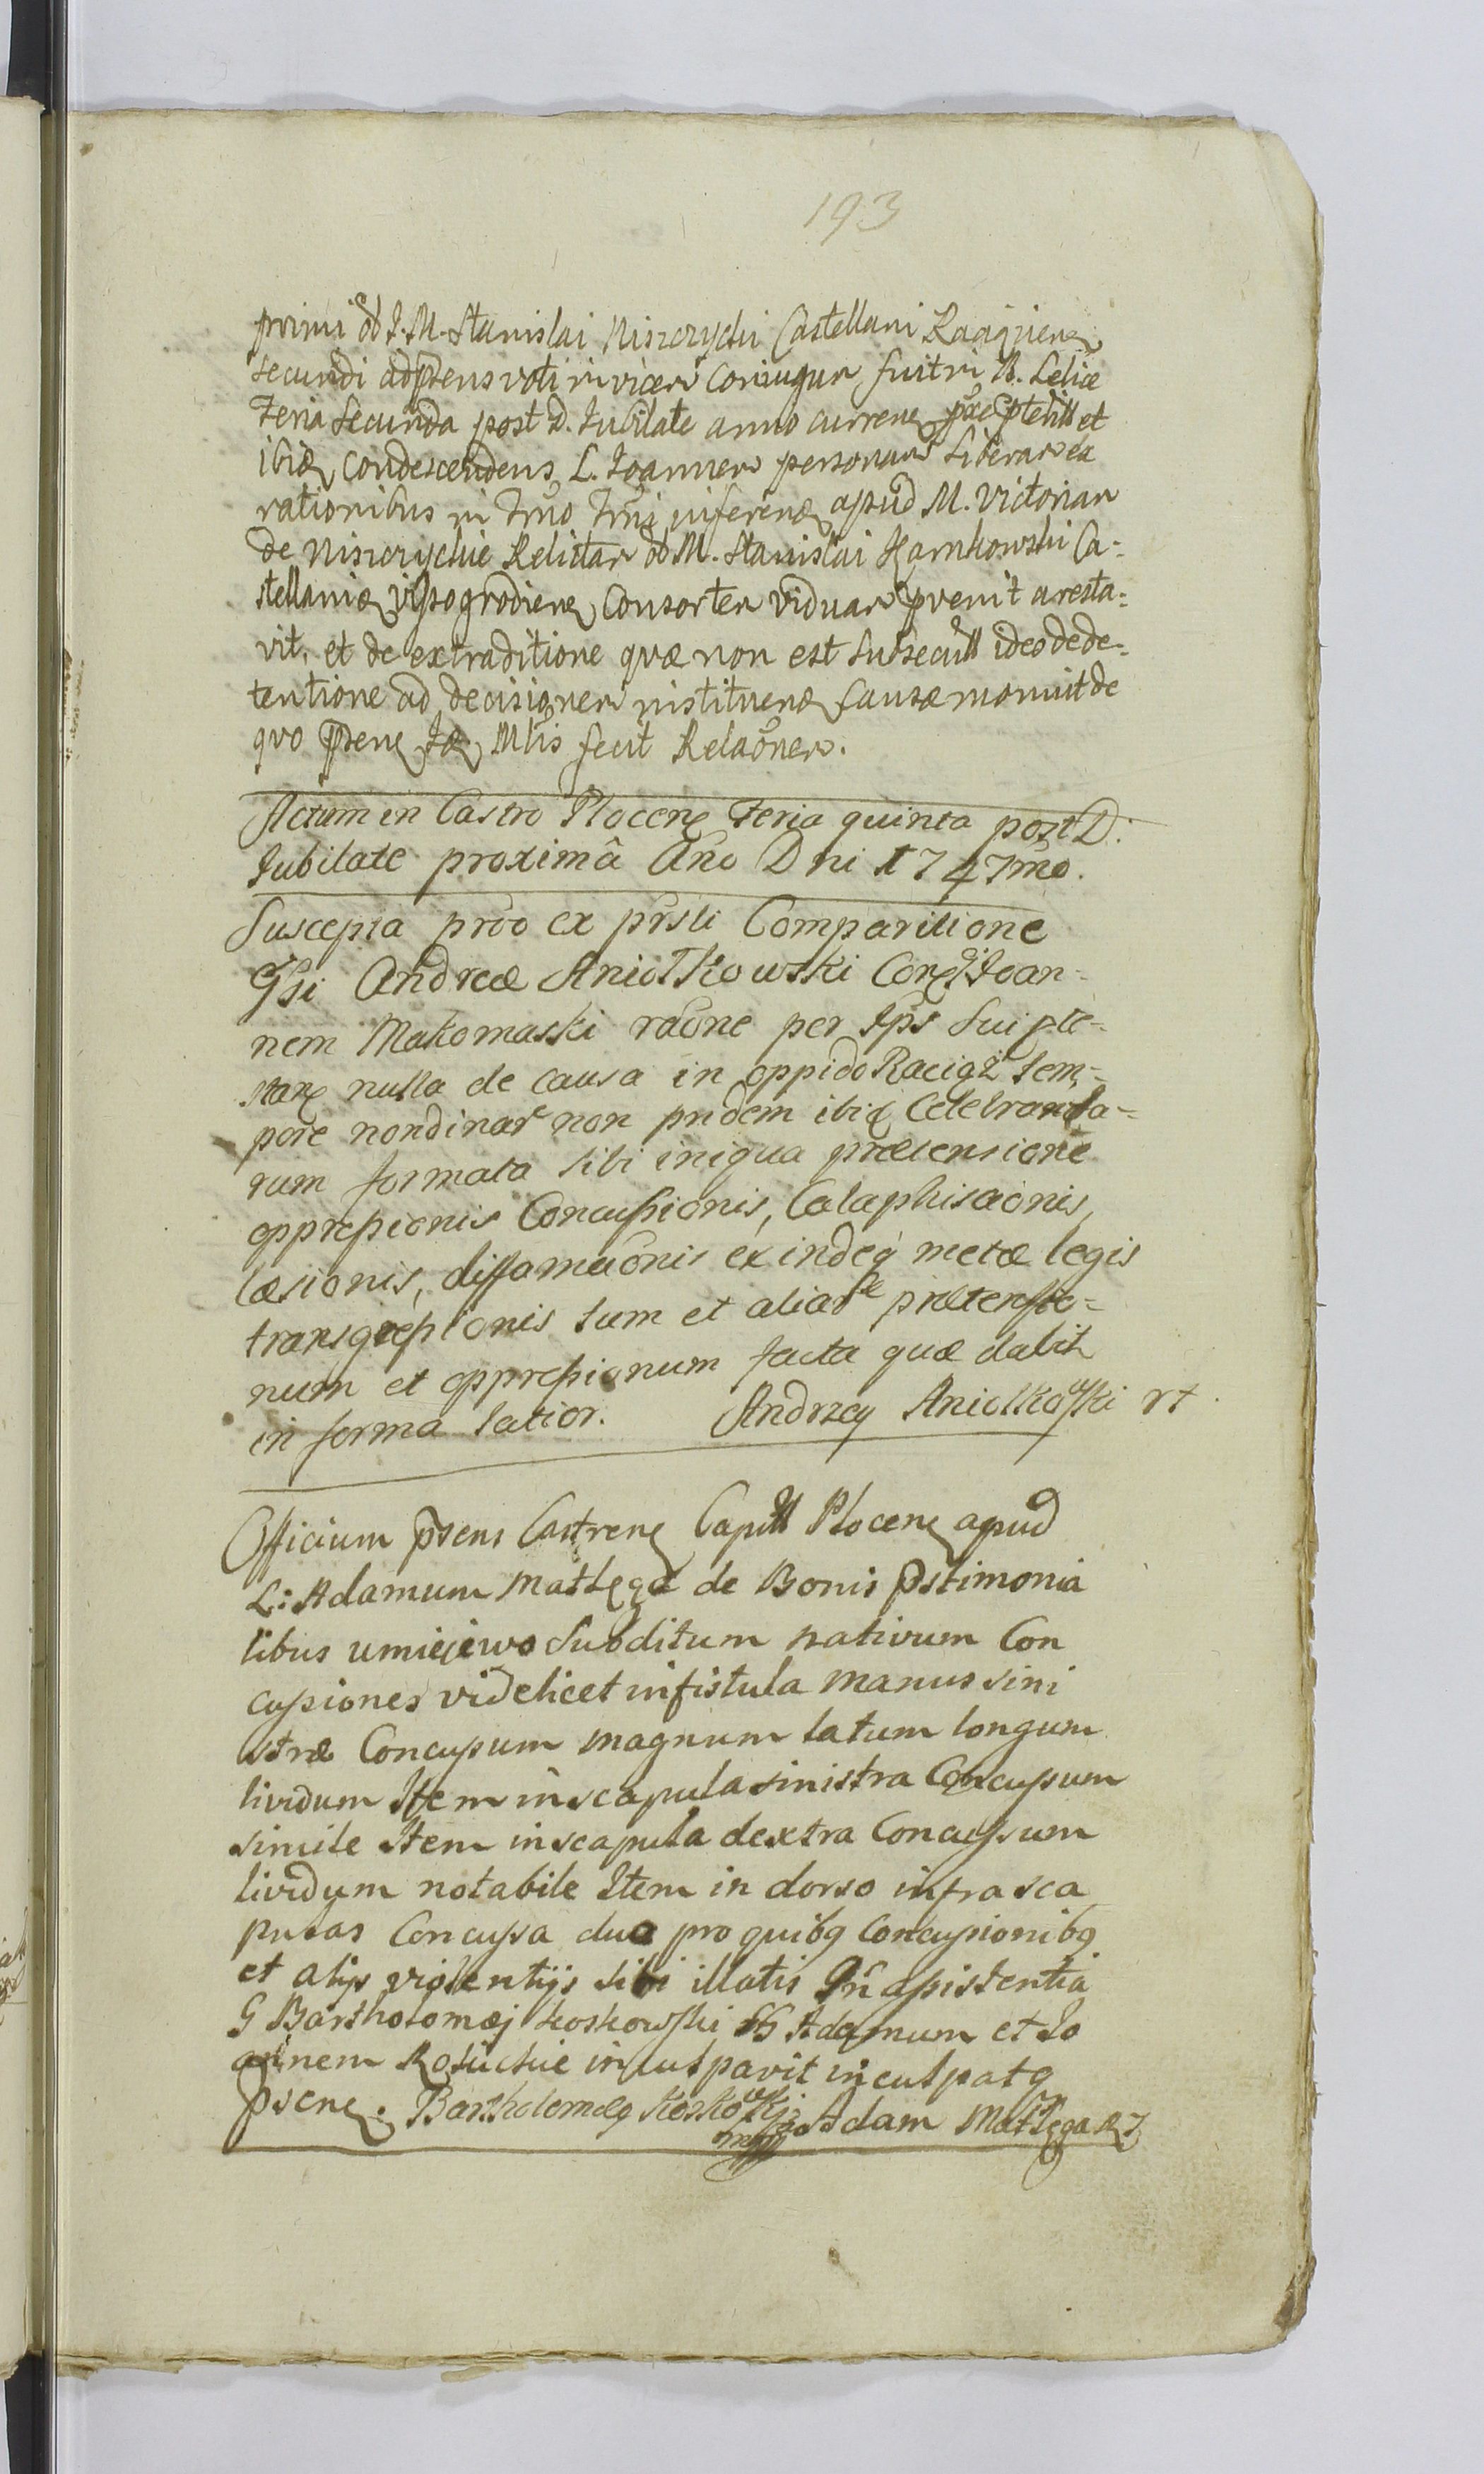 193
primi ol J. M. Stanislai Niszczycki Castellani Raciążiens
secundi adpsens voti in vicem Coniugum fuit in B. Lelice
Feria Secunda post D. Jubilate anno currens prox ptertt et
ibid condescendens L. Joannem personam liberam ex
rationibus in Trno Trni inferend apud M. Victoriam
de Niszczyckie Relictam ol M. Stanislai Karnkowski Ca-
stellanid Wyssogrodiens Consortem viduam pvenit aresta-
vit, et de extraditione quæ non est subsecutt ideo de de-
tentione ad decisionem instituend causæ monuit de
quo psens Mtis fecit Relaõnem.
Actum in Castro Plocens Feria quinta post D.
Jubilate proximâ Ano Dni 1747mo.
Suscepta prõo ex prsti Comparitione
Gsi Andreæ Aniołkowski Con Joan-
nem Makomaski raõne per Ips sui pte-
stans nulla de causa in oppido Raciąż tem-
pore nondinar non pridem ibid Celebranda-
rum formata sibi iniqua prætensione
oppressionis Concussionis, Calaphisaõnis,
læsionis, diffamaõnis exindeq metæ legis
transgressionis tum et aliar prætensio-
num et oppressionum facta quæ dabit
in forma latior. Andrzey Aniołkowski rt
Officium psens Castrens Capitt Plocens apud
L: Adamum Matłęga de Bonis Pstimonia
libus umiejewo Subditum nativum Con
cussiones videlicet in fistula manus sini
stræ Concussum magnum latum longum
lividum Item in scapula sinistra Concussum
simile Item in scapula dextra Concussum
lividum notabile Item in dorso infra sca
pulas Concussa duo pro quibq Concussionibq
et alijs violentijs sibi illatis In assistentia
G Bartholomæj Koskowski GG Adamum et Jo
annem Kosuckie inculpavit inculpatq
psens. Bartholomæy Koskowski Adam Matłęga RJ
mpp